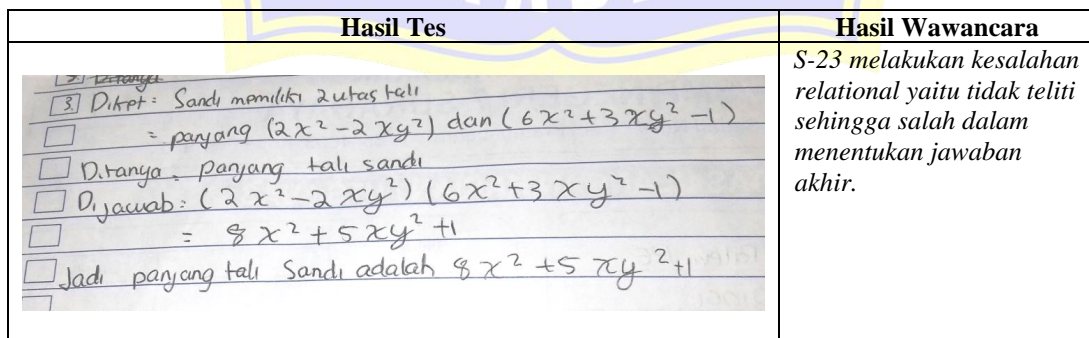 Hasil Tes
Hasil Wawancara
3. Diket : Sandi memiliki 2 utas tali
= panjang (2x² - 2xy²) dan (6x² + 3xy² - 1)
Ditanya : panjang tali sandi
Dijawab : (2x² - 2xy²) (6x² + 3xy² - 1)
= 8x² + 5xy² + 1
Jadi panjang tali Sandi adalah 8x² + 5xy² + 1
S-23 melakukan kesalahan
relational yaitu tidak teliti
sehingga salah dalam
menentukan jawaban
akhir.